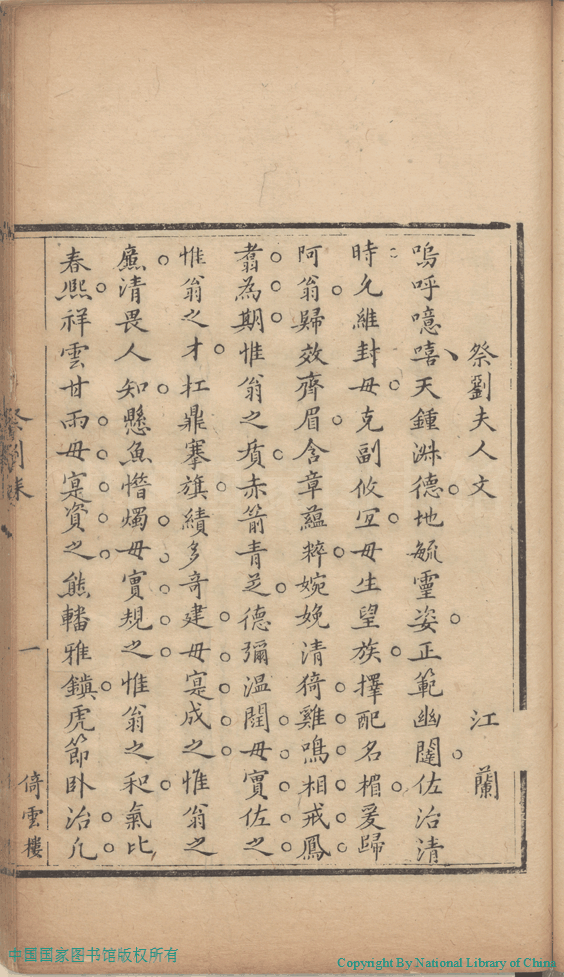 祭劉夫人文
江蘭
嗚呼噫嘻天鍾淑德地毓靈姿正範幽闥佐治清
時允維封母克副攸宜母生望族擇配名楣爰歸
阿翁歸效齊眉含章蘊粹婉娩清猗雞鳴相戒鳳
翥為期惟翁之質赤箭青芝德彌溫閏母實佐之
惟翁之才扛鼎搴旗績多奇建母寔成之惟翁之
廉清畏人知懸魚㬱燭母實規之惟翁之和氣比
春熙祥雲甘雨母寔資之熊轓雅鎮虎節卧治凡
祭劉
一
倚雲樓
中国国家图书馆版权所有
Copyright By National Library of China